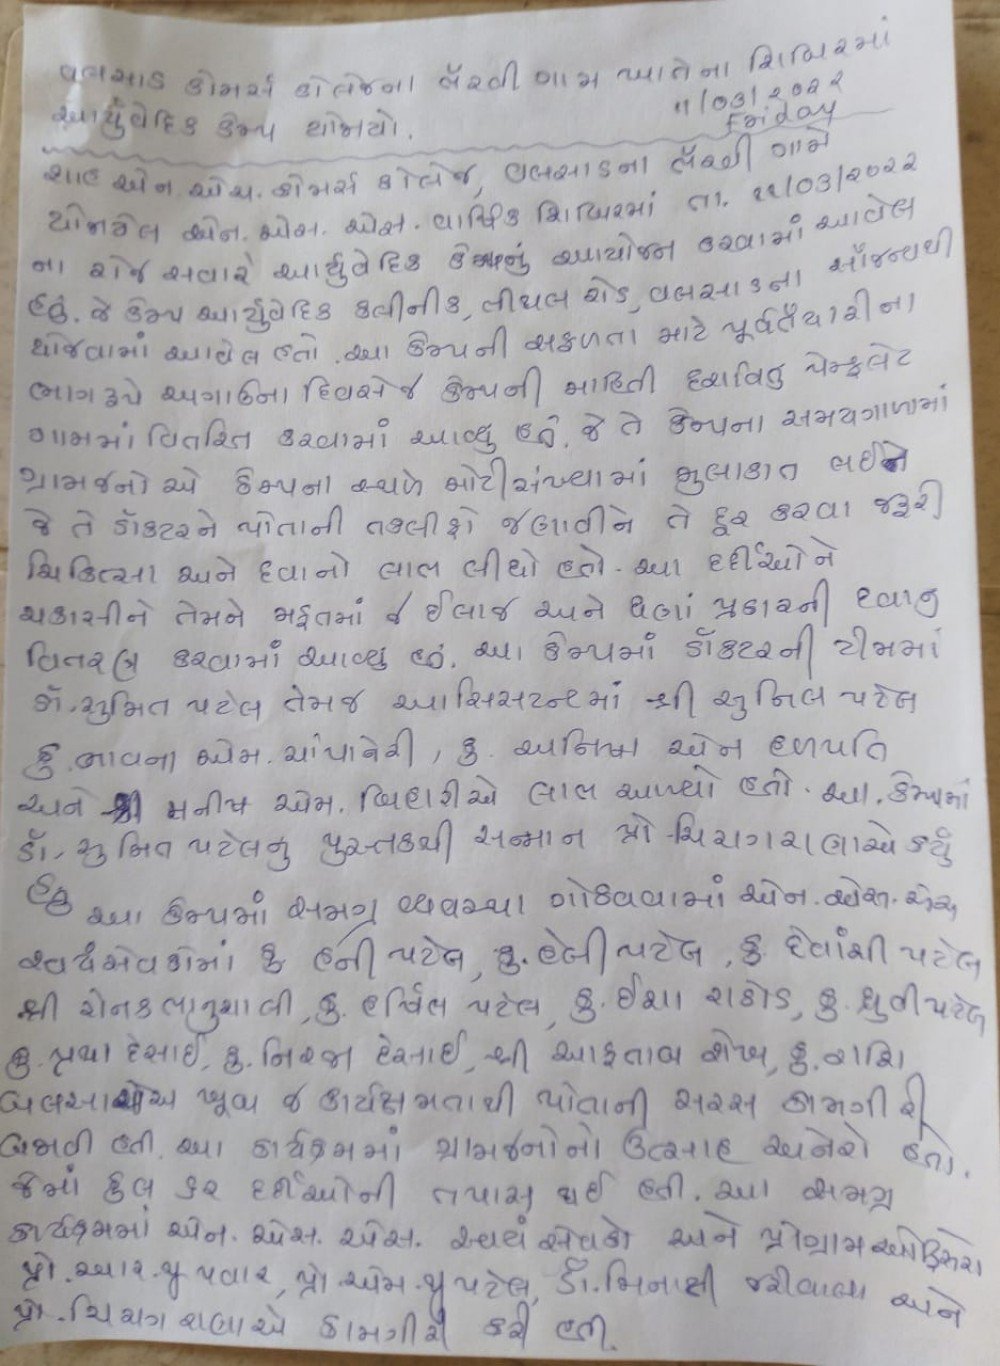 વલસાડ કોમર્સ કોલેજના લૅરવી ગામ ખાતેના શિબિરમાં
આર્યુવેદિક કેમ્પ યોજાયો.
11/03/2022
Friday
શાહ એન. એચ. કોમર્સ કોલેજ, વલસાડના ગામે
યોજાયેલ એન. એસ. એસ. વાર્ષિક શિબિરમાં તા. ૧૧/03/૨૦૨૨
ના રોજ સવારે આર્યુવેદિક કેમ્પનું આયોજન કરવામાં આવેલ
હતું. જે કેમ્પ આર્યુવેદિક કલીનીક, તીથલ રોડ, વલસાડના સૌજન્યથી
યોજવામાં આવેલ હતો. આ કેમ્પની સફળતા માટે પૂર્વતૈયારીના
ભાગ રૂપે અગાઉના દિવસે જ કેમ્પની માહિતી દર્શાવતુ પેમ્ફલેટ
ગામમાં વિતરિત કરવામાં આવ્યુ હતું. જે તે કેમ્પના સમયગાળામાં
ગ્રામજનો એ કેમ્પના સ્થળે મોટી સંખ્યામાં મુલાકાત લઈને
જે તે ડૉકટરને પોતાની તકલીફો જણાવીને તે દૂર કરવા જરૂરી
ચિકિત્સા અને દવાનો લાભ લીધો હતો. આ દર્દીઓને
ચકાસીને તેમને મફતમાં જ ઈલાજ અને ઘણાં પ્રકારની દવાનુ
વિતરણ કરવામાં આવ્યુ હતું. આ કેમ્પમાં ડૉકટરની ટીમમાં
ડૉ. સુમિત પટેલ તેમજ આસિસટન્ટમાં શ્રી સુનિલ પટેલ
કુ. ભાવના એમ. ચાંપાનેરી, કુ. અનિષા એન હળપતિ
અને શ્રી મનીષ એમ. બિહારીએ લાભ આપ્યો હતો. આ. કેમ્પમાં
ડૉ. સુમિત પટેલનુ પુસ્તકથી સન્માન પ્રો ચિરાગ રાણાએ કર્યું
હતુ
આ કેમ્પમાં સમગ્ર વ્યવસ્થા ગોઠવવામાં એન. એસ. એસ
સ્વયંસેવકોમાં કુ હની પટેલ, કુ. હેલી પટેલ, કુ. દેવાંશી પટેલ
શ્રી રોનક ભાનુશાલી, કુ. હર્ષિલ પટેલ, કુ. ઈશા રાઠોડ, કુ. ધ્રુવી પટેલ
કુ. પ્રથા દેસાઈ, કુ. નિરજા દેસાઈ, શ્રી આફતાબ શેખ, કુ. રાશિ
ખૂબ જ કાર્યક્ષમતાથી પોતાની સરસ કામગીરી
બજાવી હતી. આ કાર્યક્રમમાં ગ્રામજનોનો ઉત્સાહ અનેરો હતો.
જેમાં કુલ ૬૨ દર્દીઓની તપાસ થઈ હતી. આ સમગ્ર
કાર્યક્રમમાં એન. એસ. એસ. સ્વયં સેવકો અને પ્રોગ્રામ ઓફિસરો
પ્રો. આર. યુ પવાર, પ્રો. એમ. યુ પટેલ, ડૉ. મિનાક્ષી જરીવાલા અને
પ્રો. ચિરાગ રાણાએ કામગીરી કરી હતી.